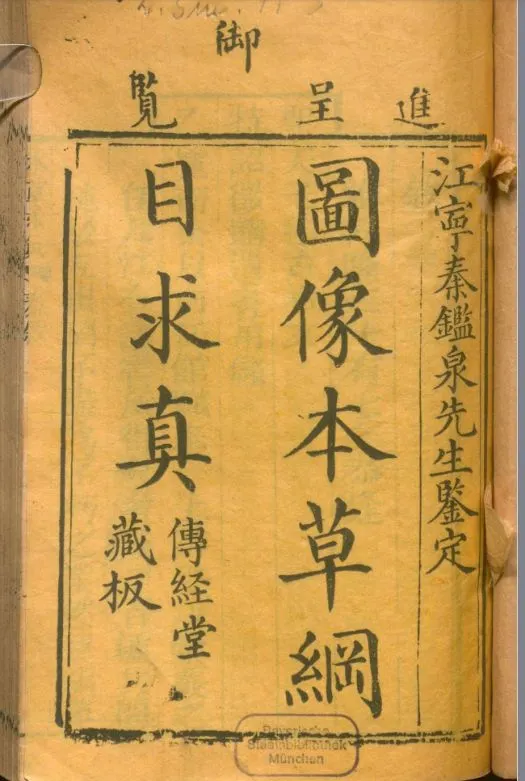 進呈
御覧
江寧秦鑑泉先生鑒定
圖像本草綱
目求真
傳経堂
藏板
Bayerische
Staatsbibliothek
München